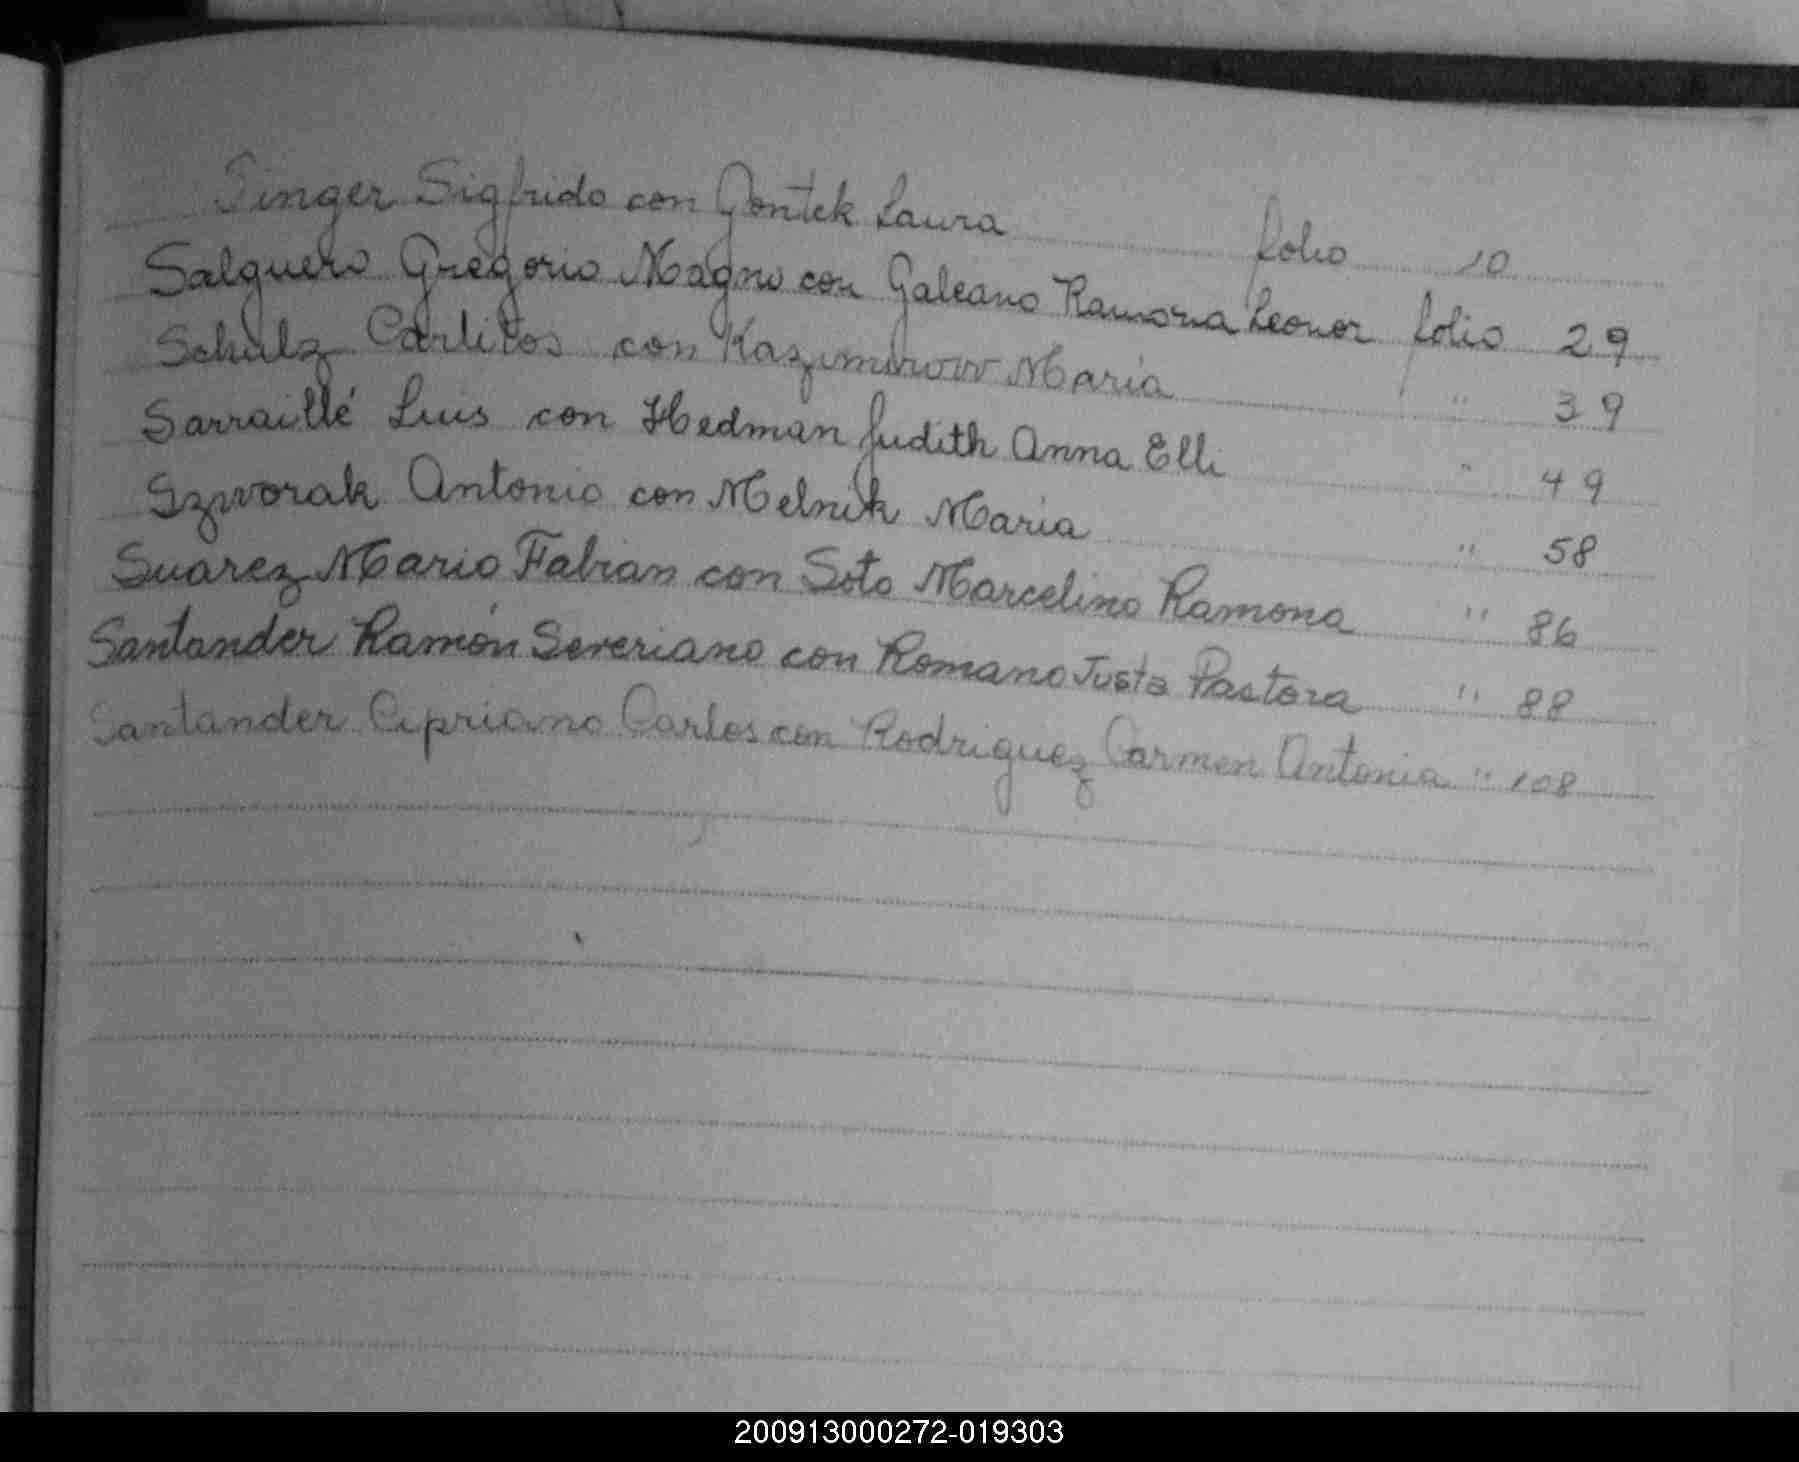 Singer Sigfrido con Gontek Laura folio 10
Salguero Gregorio Magno con Galeano Ramona Leonor folio 29
Schulz Carlitos con Kazimirow Maria " 39
Sarraillé Luis con Hedman Judith Anna Elli " 49
Szworak Antonio con Melnik Maria " 58
Suarez Mario Fabian con Soto Marcelino Ramona " 86
Santander Ramón Severiano con Romano Justa Pastora " 88
Santander Cipriano Carlos con Rodriguez Carmen Antonia " 108
200913000272-019303